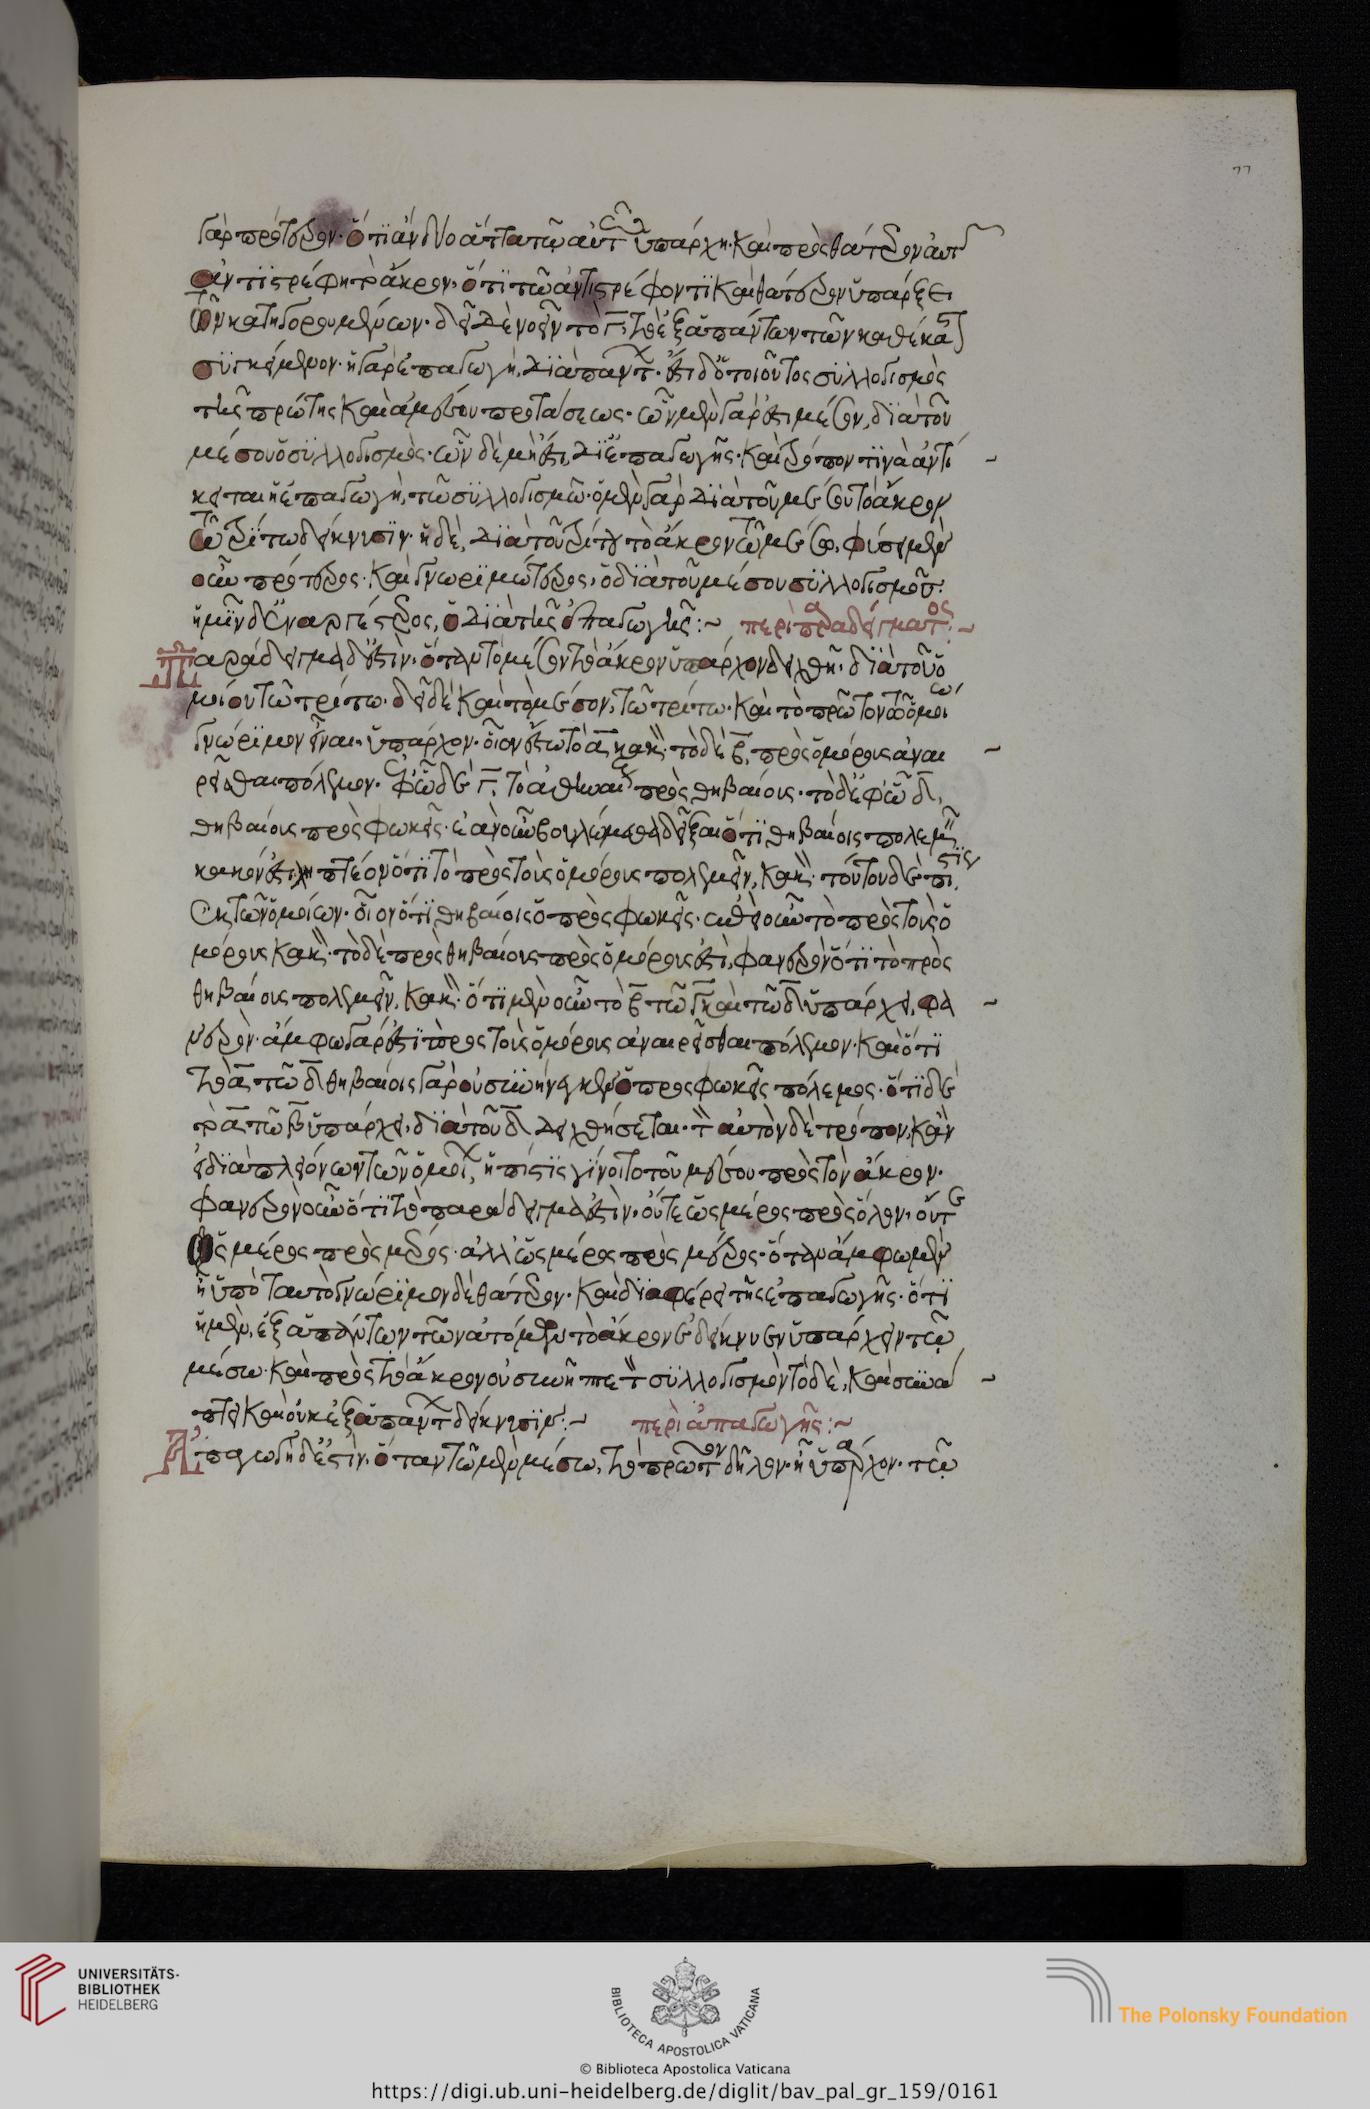 77
γὰρ πρότερον· ὅτι ἂν δύο ἄττα τῷ αὐτῷ ὑπάρχη· καὶ πρὸς θάτερον αὐτῶν
ἀντιστρέφη τὸ ἄκρον· ὅτι τῶ ἀντιστρέφοντι καὶ θάτερον ὑπάρξει
τῶν κατηγορουμένων· δεῖ δὲ νοεῖν τὸ Γ, τὸ ἐξ ἁπάντων τῶν καθέκαστον
συγκείμενον· ἡ γὰρ ἐπαγωγὴ, διὰ πάντων· ἔστι δ' ὁ τοιοῦτος συλλογισμὸς
τῆς πρώτης καὶ ἀμέσου προτάσεως· ὧν μὲν γάρ ἐστι μέσον, διὰ τοῦ
μέσου ὁ συλλογισμός· ὧν δὲ μή ἐστι, δι' ἐπαγωγῆς· καὶ τρόπον τινὰ ἀντί
κειται ἡ ἐπαγωγὴ, τῶ συλλογισμῶ· ὁ μὲν γὰρ διὰ τοῦ μέσου τὸ ἄκρον
τῶ τρίτω δείκνυσιν· ἡ δὲ, διὰ τοῦ τρίτου τὸ ἄκρον τῶ μέσω, φύσει μὲν
οὖν πρότερος καὶ γνωριμώτερος, ὁ διὰ τοῦ μέσου συλλογισμός·
ἡμῖν δ' ἐναργέστερος, ὁ διὰ τῆς ἐπαγωγῆς :~ περὶ παραδείγματος :~
Παράδειγμα δ' ἐστὶν, ὅταν τὸ μέσον τὸ ἄκρον ὑπάρχον δειχθῆ, διὰ τοῦ ὁ
μοίου τῶ τρίτω· δεῖ δὲ καὶ τὸ μέσον, τῶ τρίτω· καὶ τὸ πρῶτον τῶ ὁμοίω
γνώριμον εἶναι ὑπάρχον· οἷον ἔστω τὸ Α κακόν· τὸ δὲ Β, πρὸς ὁμόρους ἀναι
ρεῖσθαι πόλεμον· ἐφ' ὧ δὲ Γ, τὸ ἀθηναίους πρὸς θηβαίους· τὸ δ' ἐφ' ὧ Δ,
θηβαίους πρὸς φωκεῖς· ἐὰν οὖν βουλώμεθα δεῖξαι ὅτι θηβαίοις πολεμεῖν
κακόν ἐστι, ληπτέον ὅτι τὸ πρὸς τοὺς ὁμόρους πολεμεῖν, κακόν· τούτου δὲ πίστις
ἐκ τῶν ὁμοίων· οἷον ὅτι θηβαίοις ὁ πρὸς φωκεῖς· ἐπεὶ οὖν τὸ πρὸς τοὺς ὁ
μόρους κακόν· τὸ δὲ πρὸς θηβαίους πρὸς ὁμόρους ἐστὶ, φανερὸν ὅτι τὸ πρὸς
θηβαίους πολεμεῖν, κακόν· ὅτι μὲν οὖν τὸ Β τῶ Γ καὶ τῶ Δ ὑπάρχει, φα
νερὸν· ἄμφω γάρ ἐστι πρὸς τοὺς ὁμόρους ἀναιρεῖσθαι πόλεμον· καὶ ὅτι
τὸ Α τῶ Δ· θηβαίοις γὰρ οὐ συνήνεγκεν ὁ πρὸς φωκεῖς πόλεμος· ὅτι δὲ
τὸ Α τῶ Β ὑπάρχει, διὰ τοῦ Δ δειχθήσεται· τὸν αὐτὸν δὲ τρόπον, κἂν
εἰ διὰ πλειόνων τῶν ὁμοίων, ἡ πίστις γίνοιτο τοῦ μέσου πρὸς τὸν ἄκρον·
φανερὸν οὖν ὅτι τὸ παράδειγμά ἐστιν, οὔτε ὡς μέρος πρὸς ὅλον, οὔτε
ὡς μέρος πρὸς μέρος· ἀλλ' ὡς μέρος πρὸς μέρος· ὅταν ἄμφω μὲν
ἦ ὑπὸ ταυτὸ γνώριμον δὲ θάτερον· καὶ διαφέρει τῆς ἐπαγωγῆς· ὅτι
ἡ μὲν, ἐξ ἁπάντων τῶν ἀτόμων τὸ ἄκρον ἐδείκνυεν ὑπάρχειν τῶ
μέσω· καὶ πρὸς τὸ ἄκρον οὐ συνῆπτε τὸν συλλογισμὸν τὸ δὲ, καὶ συνά
πτει καὶ οὐκ ἐξ ἁπάντων δείκνυσιν :~ περὶ ἀπαγωγῆς :~
Ἀπαγωγὴ δ' ἐστὶν, ὅταν τῶ μὲν μέσω, τὸ πρῶτον δῆλον ἦ ὑπάρχον· τῶ
UNIVERSITÄTS-
BIBLIOTHEK
HEIDELBERG
BIBLIOTECA APOSTOLICA VATICANA
The Polonsky Foundation
© Biblioteca Apostolica Vaticana
https://digi.ub.uni-heidelberg.de/diglit/bav_pal_gr_159/0161